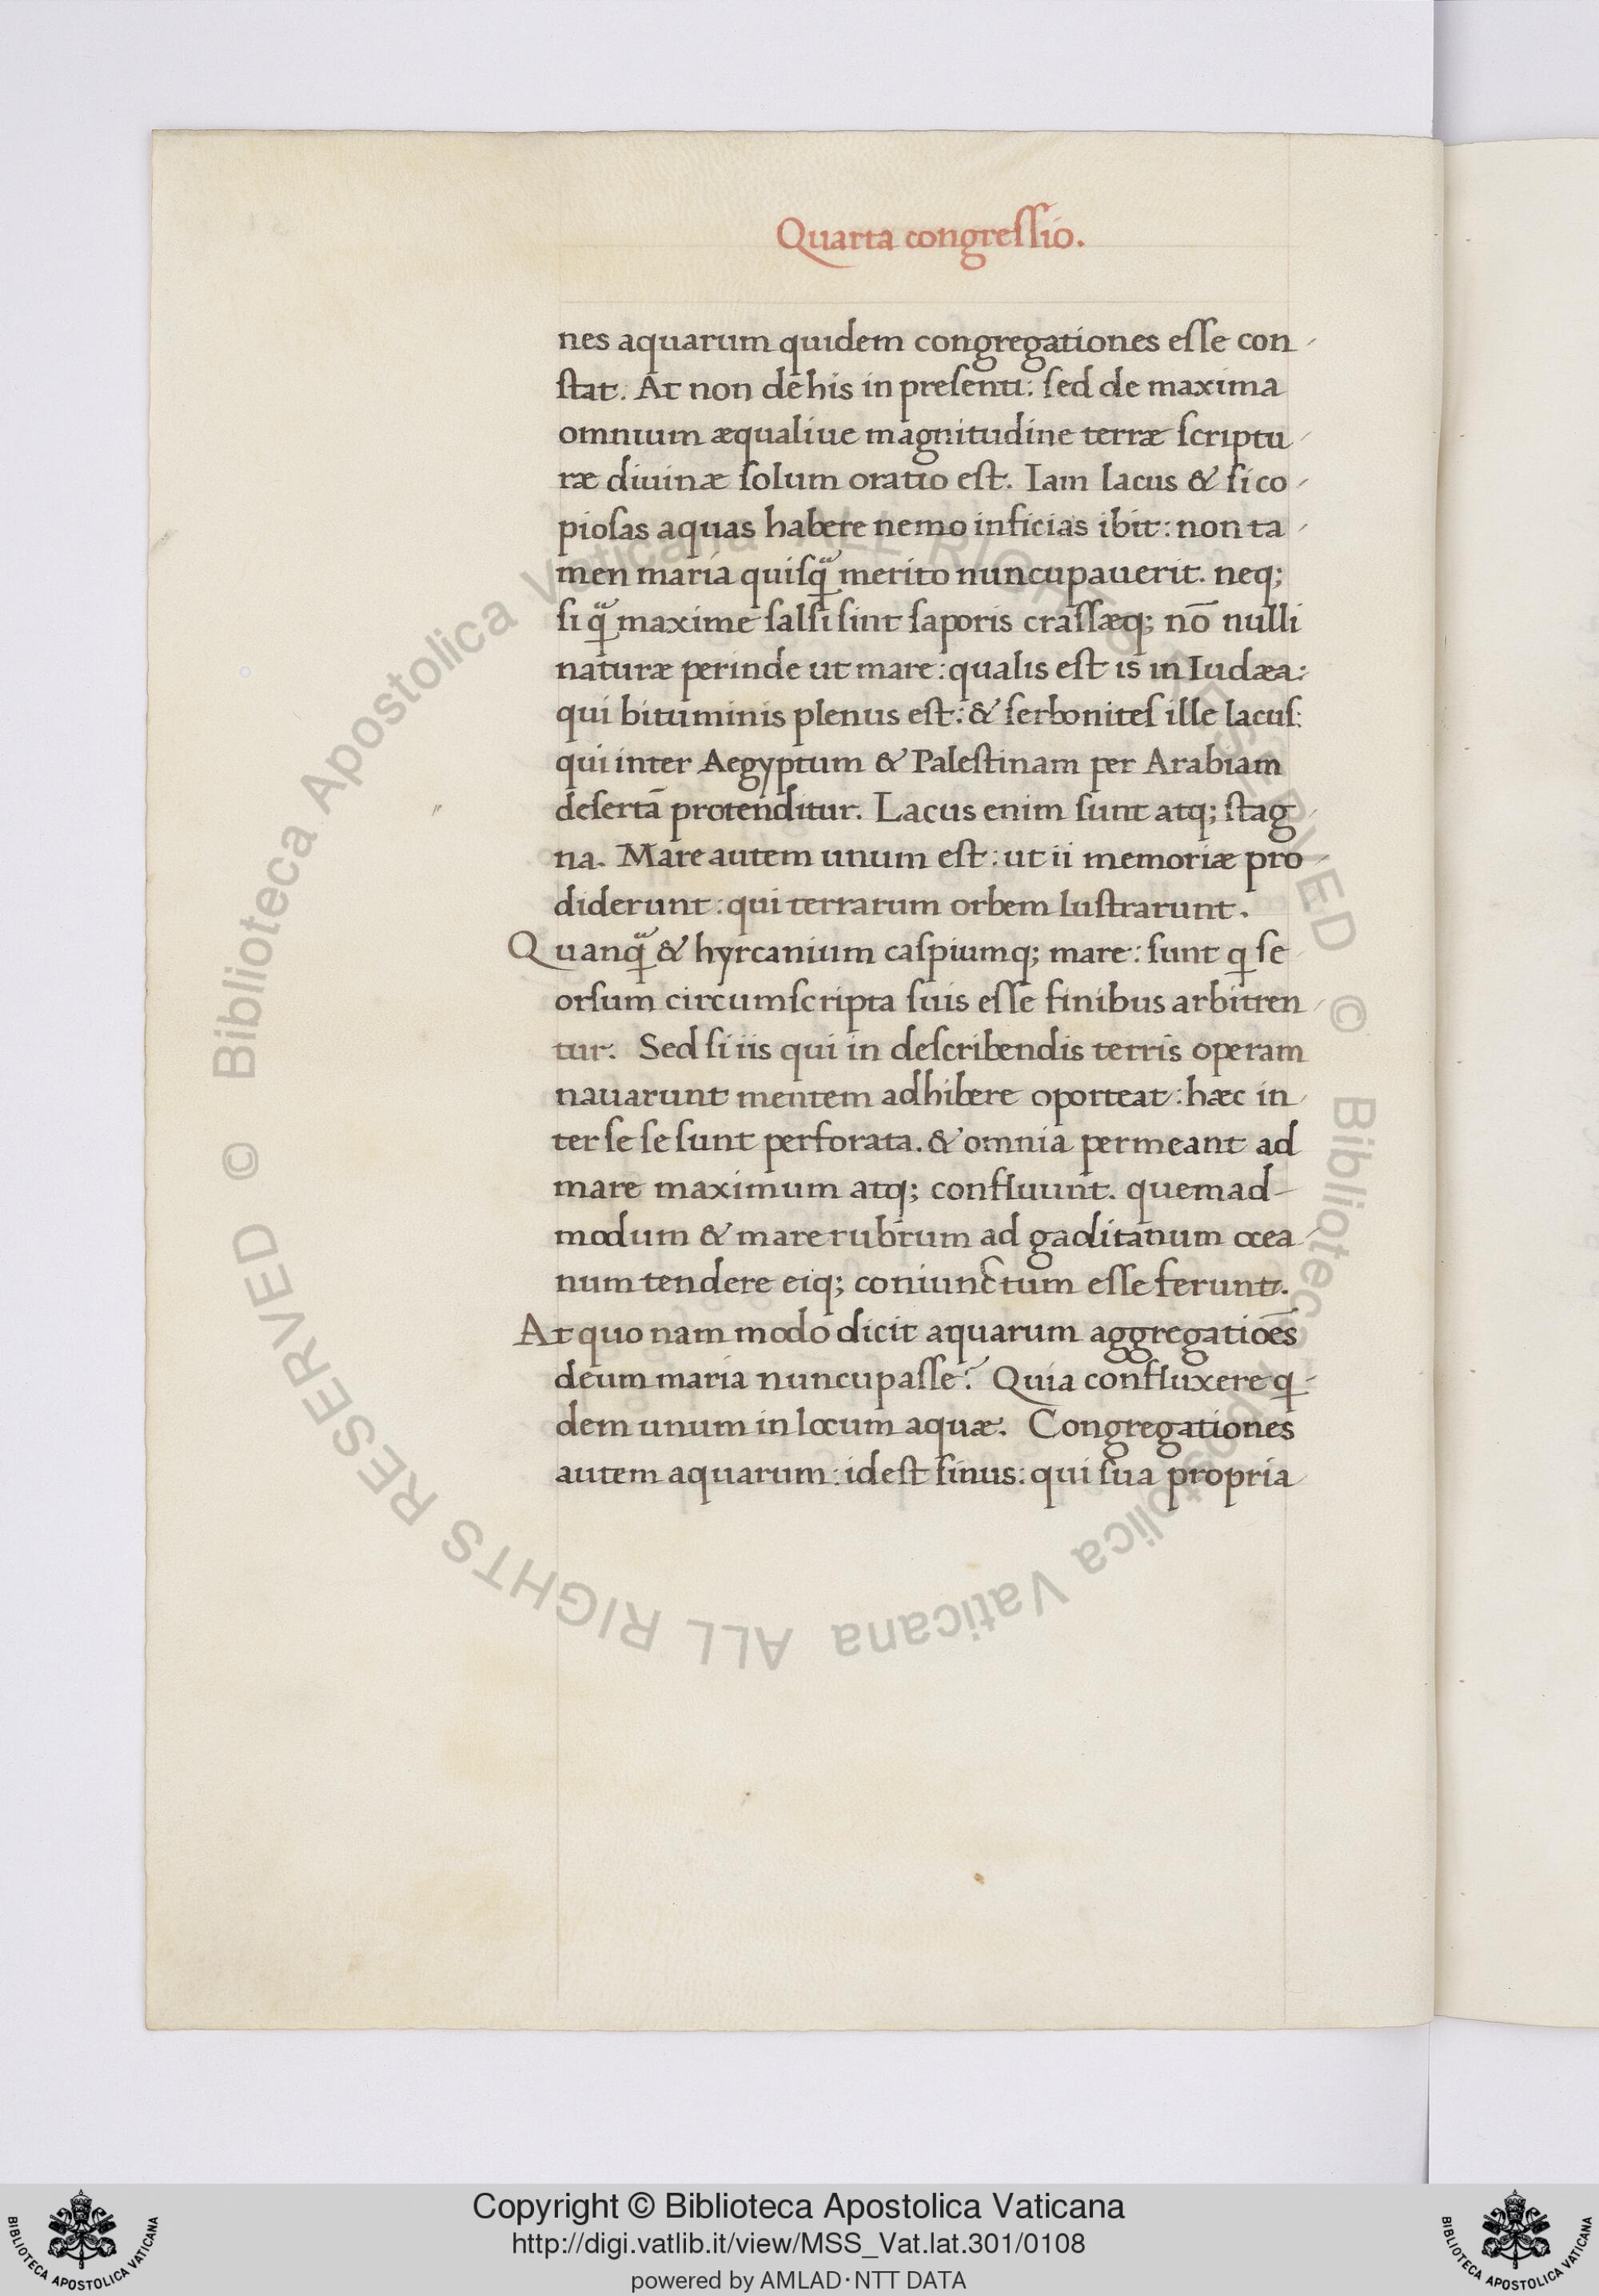 Quarta congreſſio.
nes aquarum quidem congregationes eſſe con-
ſtat. At non de his in preſenti: ſed de maxima
omnium æqualiue magnitudine terræ ſcriptu-
ræ diuinæ ſolum oratio eſt. Iam lacus & ſi co-
pioſas aquas habere nemo inficias ibit: non ta-
men maria quiſq̃ merito nuncupauerit. neq;
ſi q̃ maxime ſalſi ſint ſaporis craſſæq; nō nulli
naturæ perinde ut mare: qualis eſt is in Iudæa:
qui bituminis plenus eſt: & ſerboniteſ ille lacuſ:
qui inter Aegyptum & Paleſtinam per Arabiam
deſertā protenditur. Lacus enim ſunt atq; ſtag-
na. Mare autem unum eſt: ut ii memoriæ pro-
diderunt: qui terrarum orbem luſtrarunt.
Quanq̃ & hyrcanium caſpiumq; mare: ſunt ꝗ ſe-
orſum circumſcripta ſuis eſſe finibus arbitren-
tur. Sed ſi iis qui in deſcribendis terris operam
nauarunt mentem adhibere oporteat: hæc in-
ter ſe ſe ſunt perforata. & omnia permeant ad
mare maximum atq; confluunt. quemad-
modum & mare rubrum ad gaditanum ocea-
num tendere eiq; coniunctum eſſe ferunt.
At quo nam modo dicit aquarum aggregatiōes
deum maria nuncupaſſe? Quia confluxere ꝗ-
dem unum in locum aquæ. Congregationes
autem aquarum: ideſt ſinus: qui ſua propria
© Biblioteca Apostolica Vaticana ALL RIGHTS RESERVED © Biblioteca Apostolica Vaticana ALL RIGHTS RESERVED
Copyright © Biblioteca Apostolica Vaticana
http://digi.vatlib.it/view/MSS_Vat.lat.301/0108
powered by AMLAD·NTT DATA
BIBLIOTECA APOSTOLICA VATICANA
BIBLIOTECA APOSTOLICA VATICANA